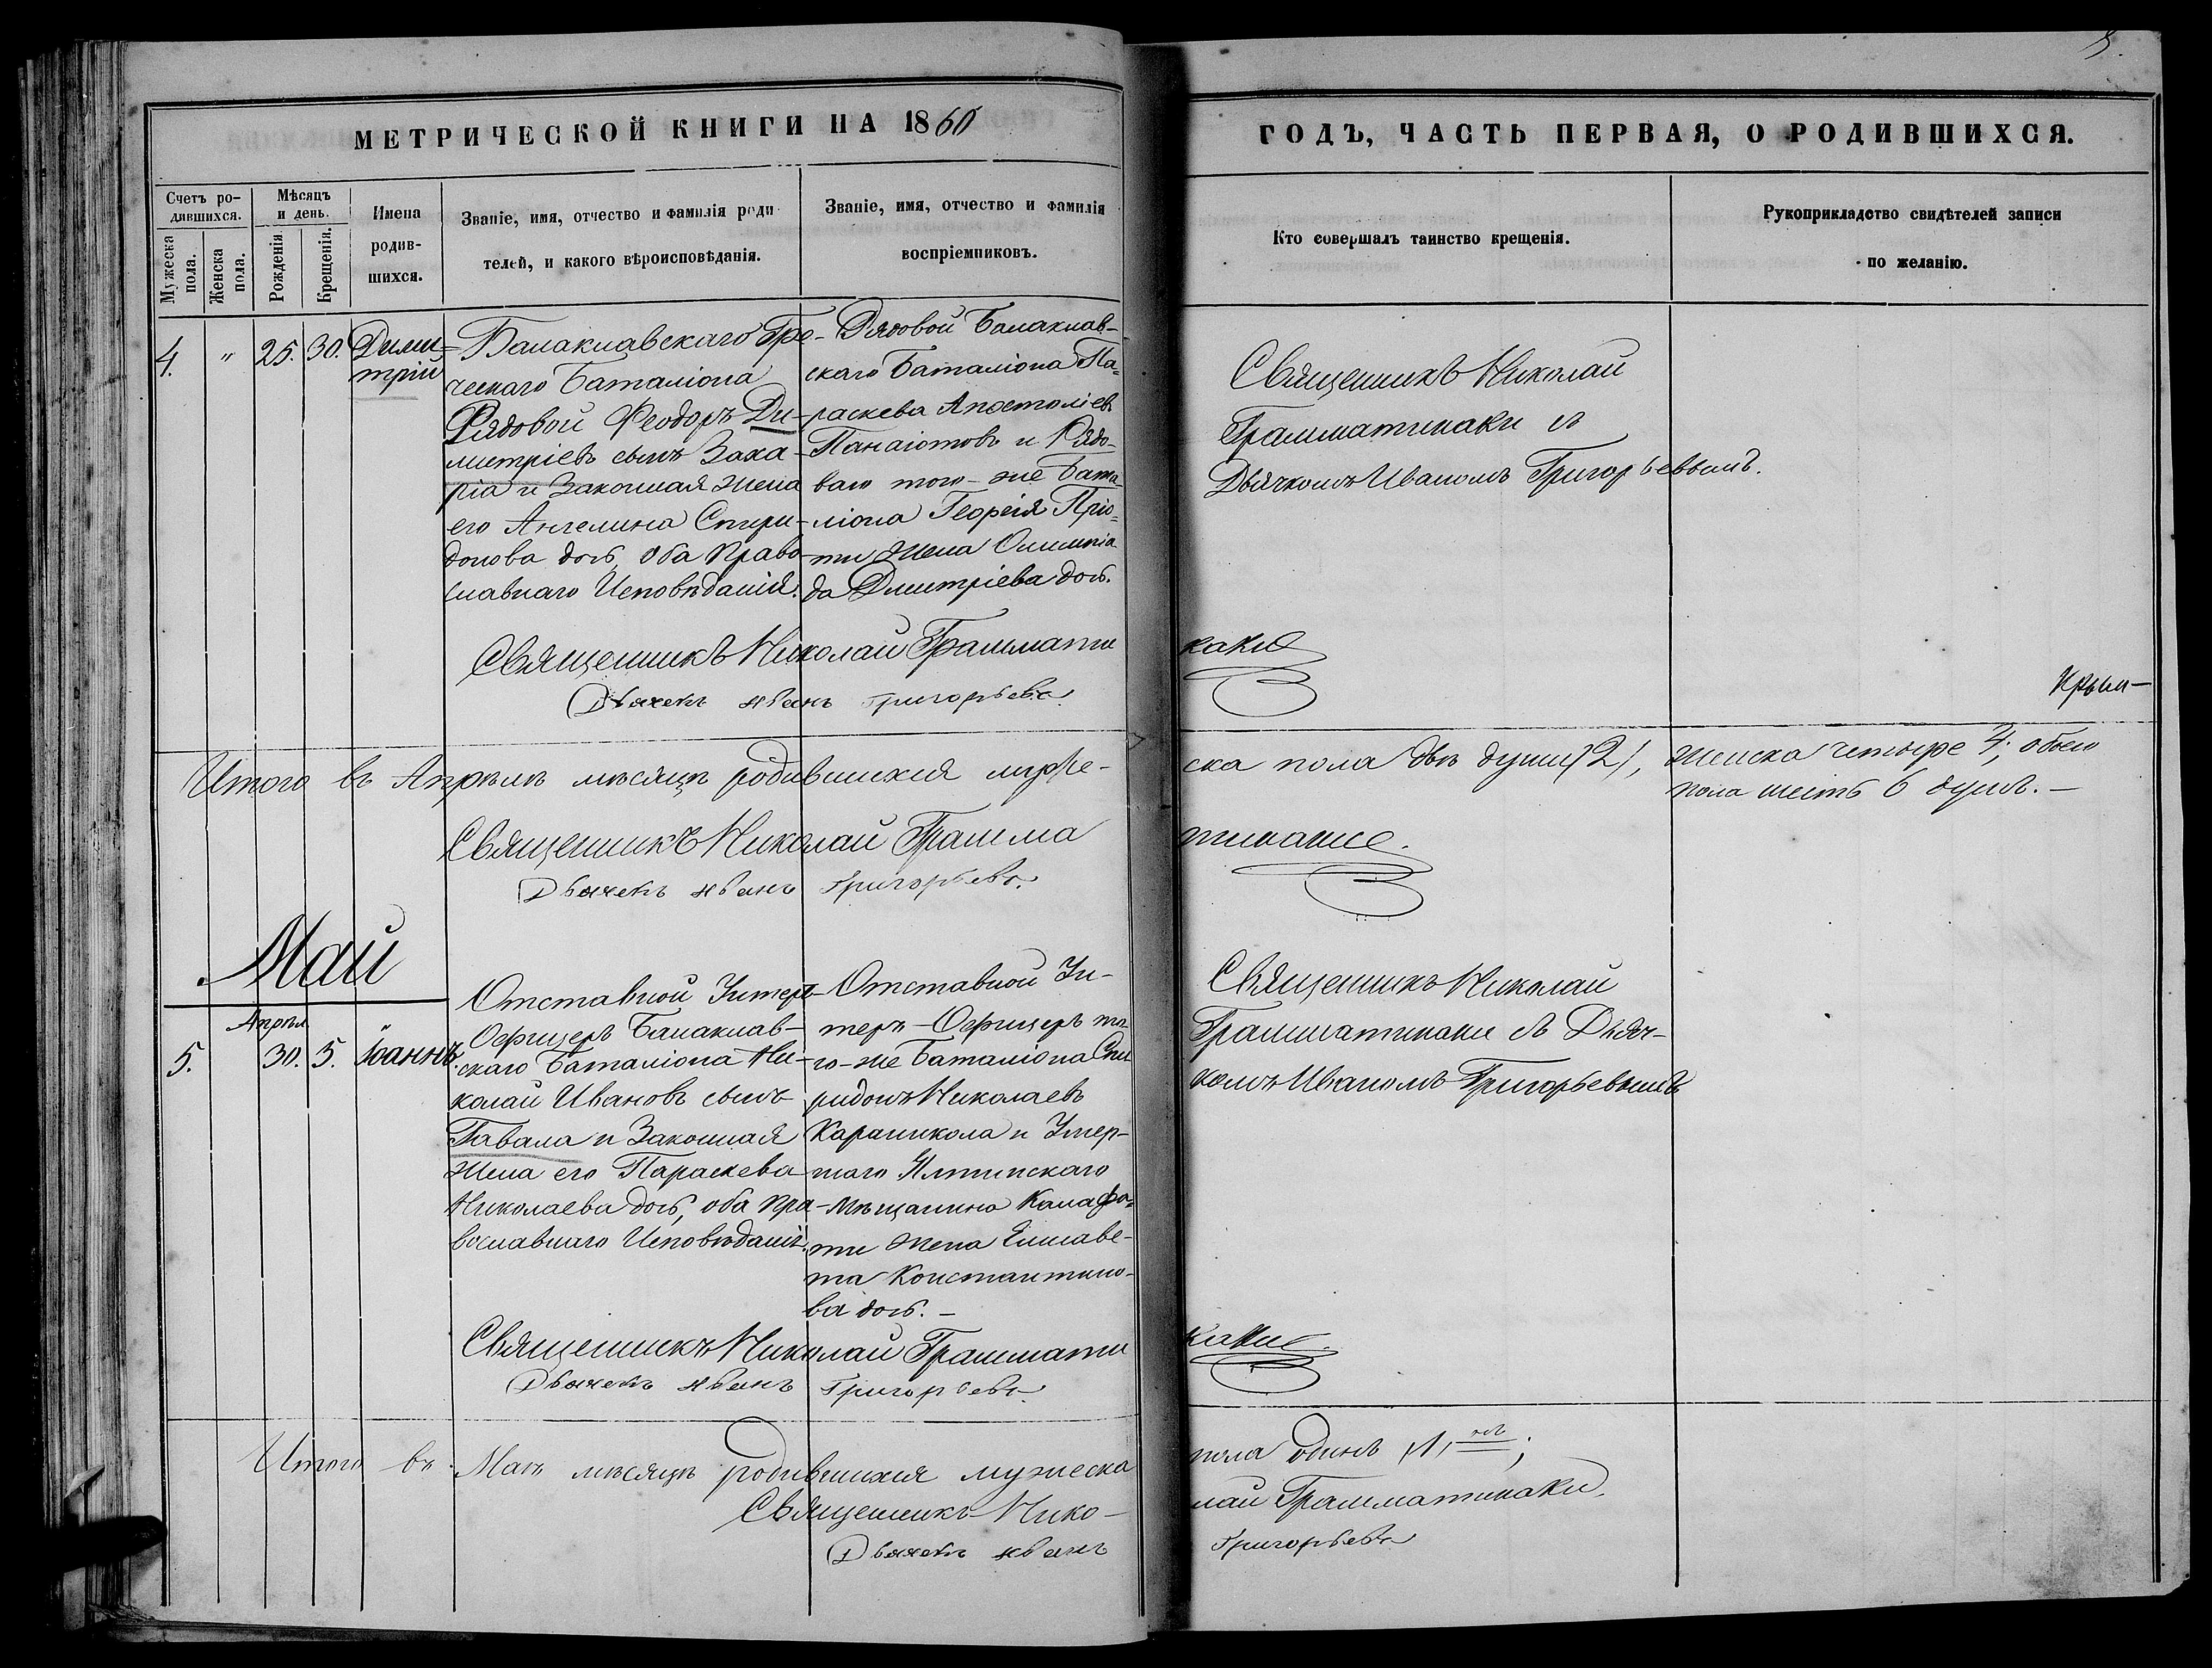 5.
МЕТРИЧЕСКОЙ КНИГИ НА 1860
ГОДЪ, ЧАСТЬ ПЕРВАЯ, О РОДИВШИХСЯ.
Счетъ ро-
дившихся.
Мужеска пола.
Женска пола.
Мѣсяцъ
и день.
Рожденія.
Крещенія.
Имена
родив-
шихся.
Званіе, имя, отчество и фамилія роди
телей, и какого вѣроисповѣданія.
Званіе, имя, отчество и фамилія
воспріемниковъ.
Кто совершалъ таинство крещенія.
Рукоприкладство свидѣтелей записи
по желанію.
4.
"
25.
30.
Дими-
трій
Балаклавскаго Гре-
ческаго Баталіона
Рядовой Феодоръ Ди-
митріевъ сынъ Заха-
ріа и Законная жена
его Ангелина Спири-
донова дочь, оба Право-
славнаго Исповѣданія.
Рядовой Балаклав-
скаго Баталіона Па-
раскева Апостоліевъ
Панаіотовъ и Рядо-
ваго того-же Бата-
ліона Георгія
жена Олимпіа-
да Дмитріева дочь.
Священникъ Николай
Грамматикаки съ
Дьячкомъ Иваномъ Григорьевымъ.
Священникъ Николай Граммати
каки
Дьячекъ Иванъ Григорьевъ.
Итого въ Апрѣлѣ мѣсяцѣ родившихся муже-
ска пола двѣ души (2), женска четыре 4; обоего
пола шесть 6 душъ. —
Священникъ Николай Грамма
тикаки.
Дьячекъ Иванъ Григорьевъ.
Май
5.
Апрѣл
30.
5.
Іоаннъ.
Отставной Унтеръ-
Офицеръ Балаклав-
скаго Баталіона Ни-
колай Ивановъ сынъ
Гавала и Законная
жена его Параскева
Николаева дочь, оба Пра-
вославнаго Исповѣданія.
Отставной Ун-
теръ-Офицеръ то-
го-же Баталіона Спи
ридонъ Николаевъ
Караникола и Умер-
шаго Ялтинскаго
Мѣщанина Калафа-
ти жена Елисаве-
та Константино-
ва дочь. —
Священникъ Николай
Грамматикаки съ Дьяч-
комъ Иваномъ Григорьевымъ
Священникъ Николай Граммати
каки.
Дьячекъ Иванъ Григорьевъ.
Итого въ Маѣ мѣсяцѣ родившихся мужеска
пола одинъ (1);
Священникъ Нико-
лай Грамматикаки.
Дьячекъ Иванъ
Григорьевъ